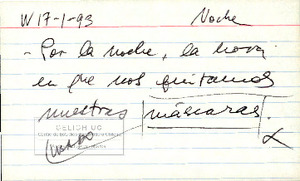 W 17-1-93 Noche
- Por la noche, la hora
en que nos quitamos
nuestras máscaras.
CELICH UC